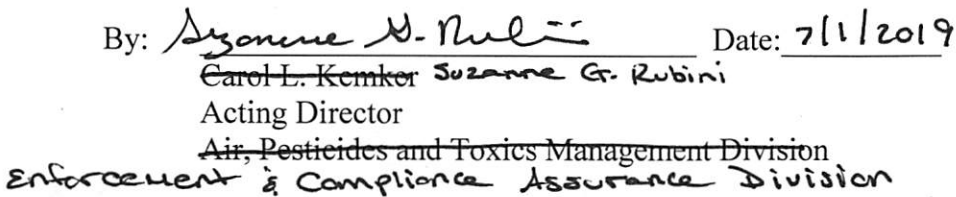 By: Suzanne G. Rubini Date: 7/1/2019
Carol L. Kemker Suzanne G. Rubini
Acting Director
Air, Pesticides and Toxics Management Division
Enforcement & Compliance Assurance Division